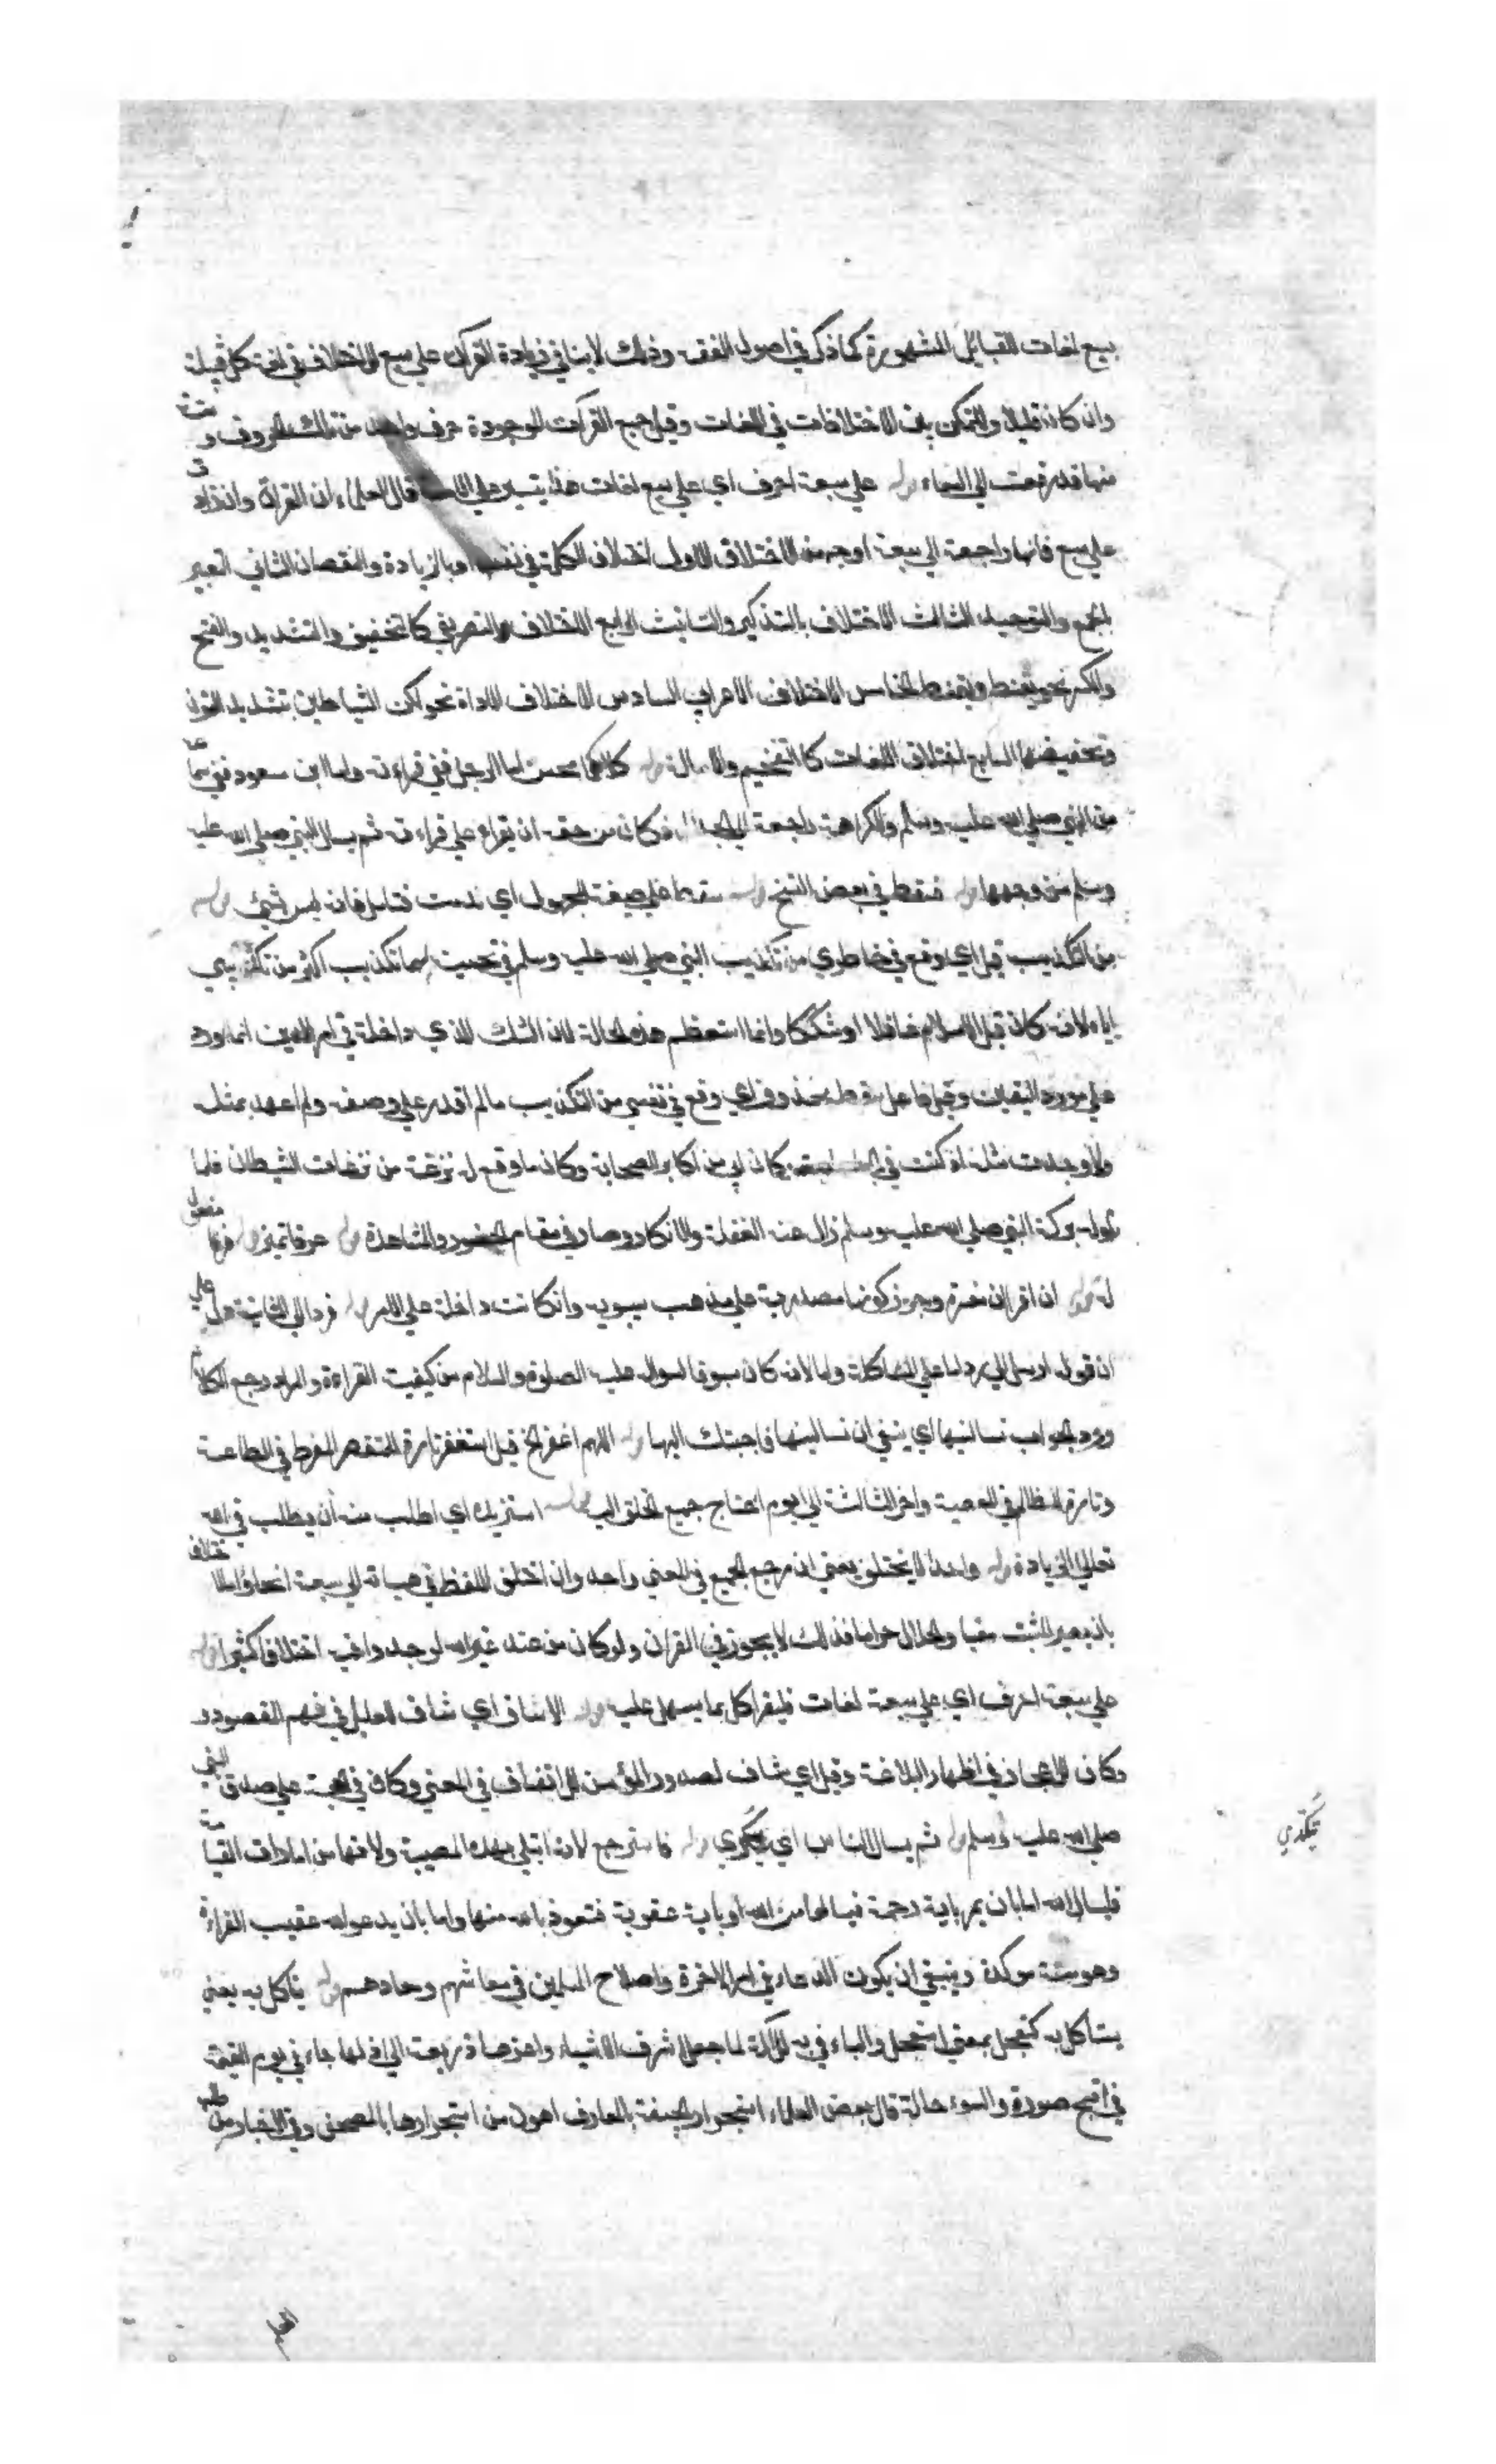 سبع لغات القبائل المشهورة كما ذكر في اصول الفقه وذلك لا ينافي زيادة القرآن على سبع للاختلاف في لغة كل قبيلة
وان كان قليلا والتمكن بين الاختلافات في اللغات وقيل جميع القرآت الموجودة حرف واحد من تلك الحروف و ستة
منها قد رفعت الي السماء قوله على سبعة احرف اي على سبع لغات هذا تيسير على قال العلماء ان القراة وان زادت
على سبع فانها راجعة الي سبعة اوجه من الاختلاف الاول اختلاف الكلمة في نفسها او بالزيادة والنقصان الثاني التغيير
بالجمع والتوحيد الثالث الاختلاف بالتذكير والتانيث الرابع الاختلاف التصريفي كالتخفيف والتشديد والفتح
والكسر نحو يقنط ويقنط الخامس الاختلاف الاعرابي السادس الاختلاف الاداة نحو لكن الشياطين بتشديد النون
وتخفيفها السابع اختلاف اللغات كالتفخيم والامالة قوله كلاكما محسن اما الرجل ففي قراءته واما ابن مسعود ففي سماعه
من النبي صلى الله عليه وسلم والكراهة راجعة الي فكان من حقه ان يقراء على قراءته ثم يسال النبي صلى الله عليه
وسلم من وجهها قوله فسقط في بعض النسخ سقط على صيغة المجهول اي ندمت فتامل فانه ليس بشيئ قوله
من التكذيب قيل اي وقع في خاطري من تكذيب النبي صلى الله عليه وسلم في تحسينه لهما تكذيب اكثر من تكذيبي
اياه لانه كان قبل الاسلام غافلا او مشككا وانما استعظم هذه الحالة لان الشك الذي داخله في امر الدين انما ورد
على مورد اليقين وقيل فاعل سقط محذوف اي وقع في نفسي من التكذيب مالم اقدر على وصفه ولم اعهد بمثله
ولا وجدت مثله اذ كنت في الجاهلية وكان ابي من اكابر الصحابة وكان ما وقع له نزغة من نزغات الشيطان فلما
بركة النبي صلى الله عليه وسلم زال عنه الغفلة والانكار وصار في مقام الحضور والمشاهدة قوله عرقا تميز قوله فرقا مفعول
له قوله ان اقرا ان مفسرة وجوز كونها مصدرية على مذهب سيبويه وان كانت داخلة على الامر قوله فرد الي الثانية على
ان قوله ارسل الي رد اما على المشاكلة واما لانه كان مسبوقا لسؤال عليه الصلوة والسلام من كيفيت القراءة والمراد رجع الكلام
ورد الجواب تسالنيها اي ينبغي ان تسالنيها فاجبتك اليها قوله اللهم اغفر الخ قيل استغفر تارة للمقتصر المفرط في الطاعة
وتارة للظالم في المعصية واخر الثالثة الي يوم احتاج جميع الخلق اليه قوله استزيده اي اطلب منه ان يطلب في الله
تعالي الزيادة قوله واحدا لا يختلف يعني ان مرجع الجميع في المعني واحد وان اختلف اللفظ في هيئاته الي سبعة انحاء واما الاختلاف
بان يصير المثبت منفيا والحلال حراما فذلك لا يجوز في القران ولو كان من عند غير الله لوجدوا فيه اختلافا كثيرا قوله
على سبعة احرف اي على سبعة لغات فليقرا كل بما يسهل عليه قوله الا شاف اي شاف للعليل في فهم المقصود و
وكاف للاعجاز في اظهار البلاغة وقيل اي شاف لصدور المؤمن للاتفاق في المعني وكاف في الحجة على صدق النبي
صلى الله عليه وسلم قوله ثم يسال الناس اي يكدي قوله فاسترجع لانه ابتلي بهذه المصيبة ولانها من امارات القيامة
فليسال الله اما بان يمر باية رحمة فيسالها من الله او باية عقوبة فتعوذ بالله منها واما بان يدعو الله عقيب القراءة
وهو سنة موكدة وينبغي ان يكون الدعاء في امر الاخرة واصلاح المسلمين في معاشهم ومعادهم قوله يتاكل به يعني
يستاكل به كتعجل بمعني استعجل والباء في به للآلة لما جعل اشرف الاشياء واعزها ذريعة الي اذلها جاء في يوم القيمة
في اقبح صورة واسوء حالة قال بعض العلماء استجرار الجيفة بالمعازف اهون من استجرارها بالمصحف وفي الاخبار من طلب
يكدي